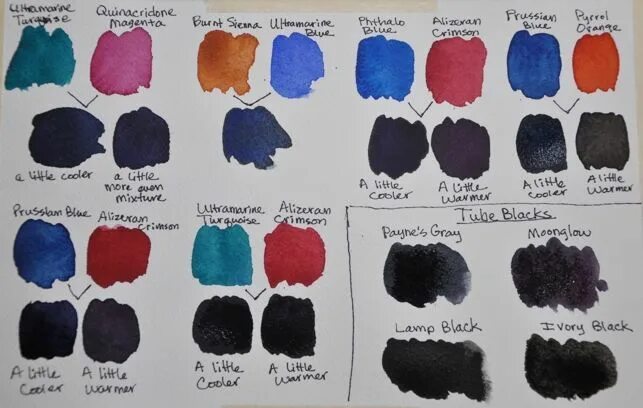 Ultramarine
Turquoise
Quinacridone
Magenta
Burnt Sienna
Ultramarine
Blue
Phthalo
Blue
Alizeran
Crimson
Prussian
Blue
Pyrrol
Orange
a little cooler
a little
more even
mixture
A little
Cooler
A little
Warmer
A little
Cooler
A little
Warmer
Prussian Blue
Alizeran
Crimson
Ultramarine
Turquoise
Alizeran
Crimson
A little
Cooler
A little
Warmer
A little
Cooler
A little
Warmer
Tube Blacks
Payne's Gray
Moonglow
Lamp Black
Ivory Black